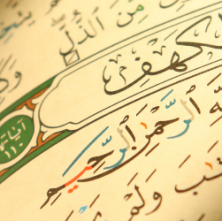 مِّنَ الذُّلِّ وَكَ
كهف
آياتها
١١٠
ـهِ الرَّحْمَٰنِ الرَّحِيمِ
ـبَ وَلَمْ